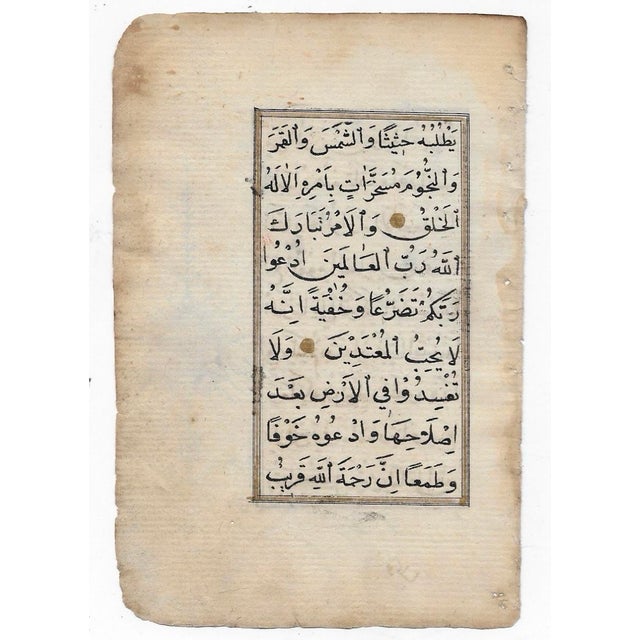 يَطْلُبُهُ حَثِيثًا وَالشَّمْسَ وَالْقَمَرَ
وَالنُّجُومَ مُسَخَّرَاتٍ بِأَمْرِهِ اَلَا لَهُ
الْخَلْقُ وَالْاَمْرُ تَبَارَكَ
اللّٰهُ رَبُّ الْعَالَمِينَ اُدْعُوا
رَبَّكُمْ تَضَرُّعًا وَخُفْيَةً اِنَّهُ
لَا يُحِبُّ الْمُعْتَدِينَ وَلَا
تُفْسِدُوا فِي الْاَرْضِ بَعْدَ
اِصْلَاحِهَا وَادْعُوهُ خَوْفًا
وَطَمَعًا اِنَّ رَحْمَةَ اللّٰهِ قَرِيبٌ